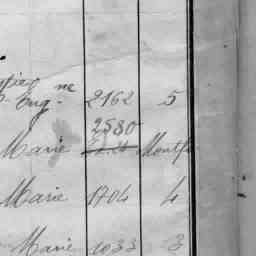 ne
Eug. 2162 5
2580
Marie Montf
Marie 1704 4
Marie 1033 3